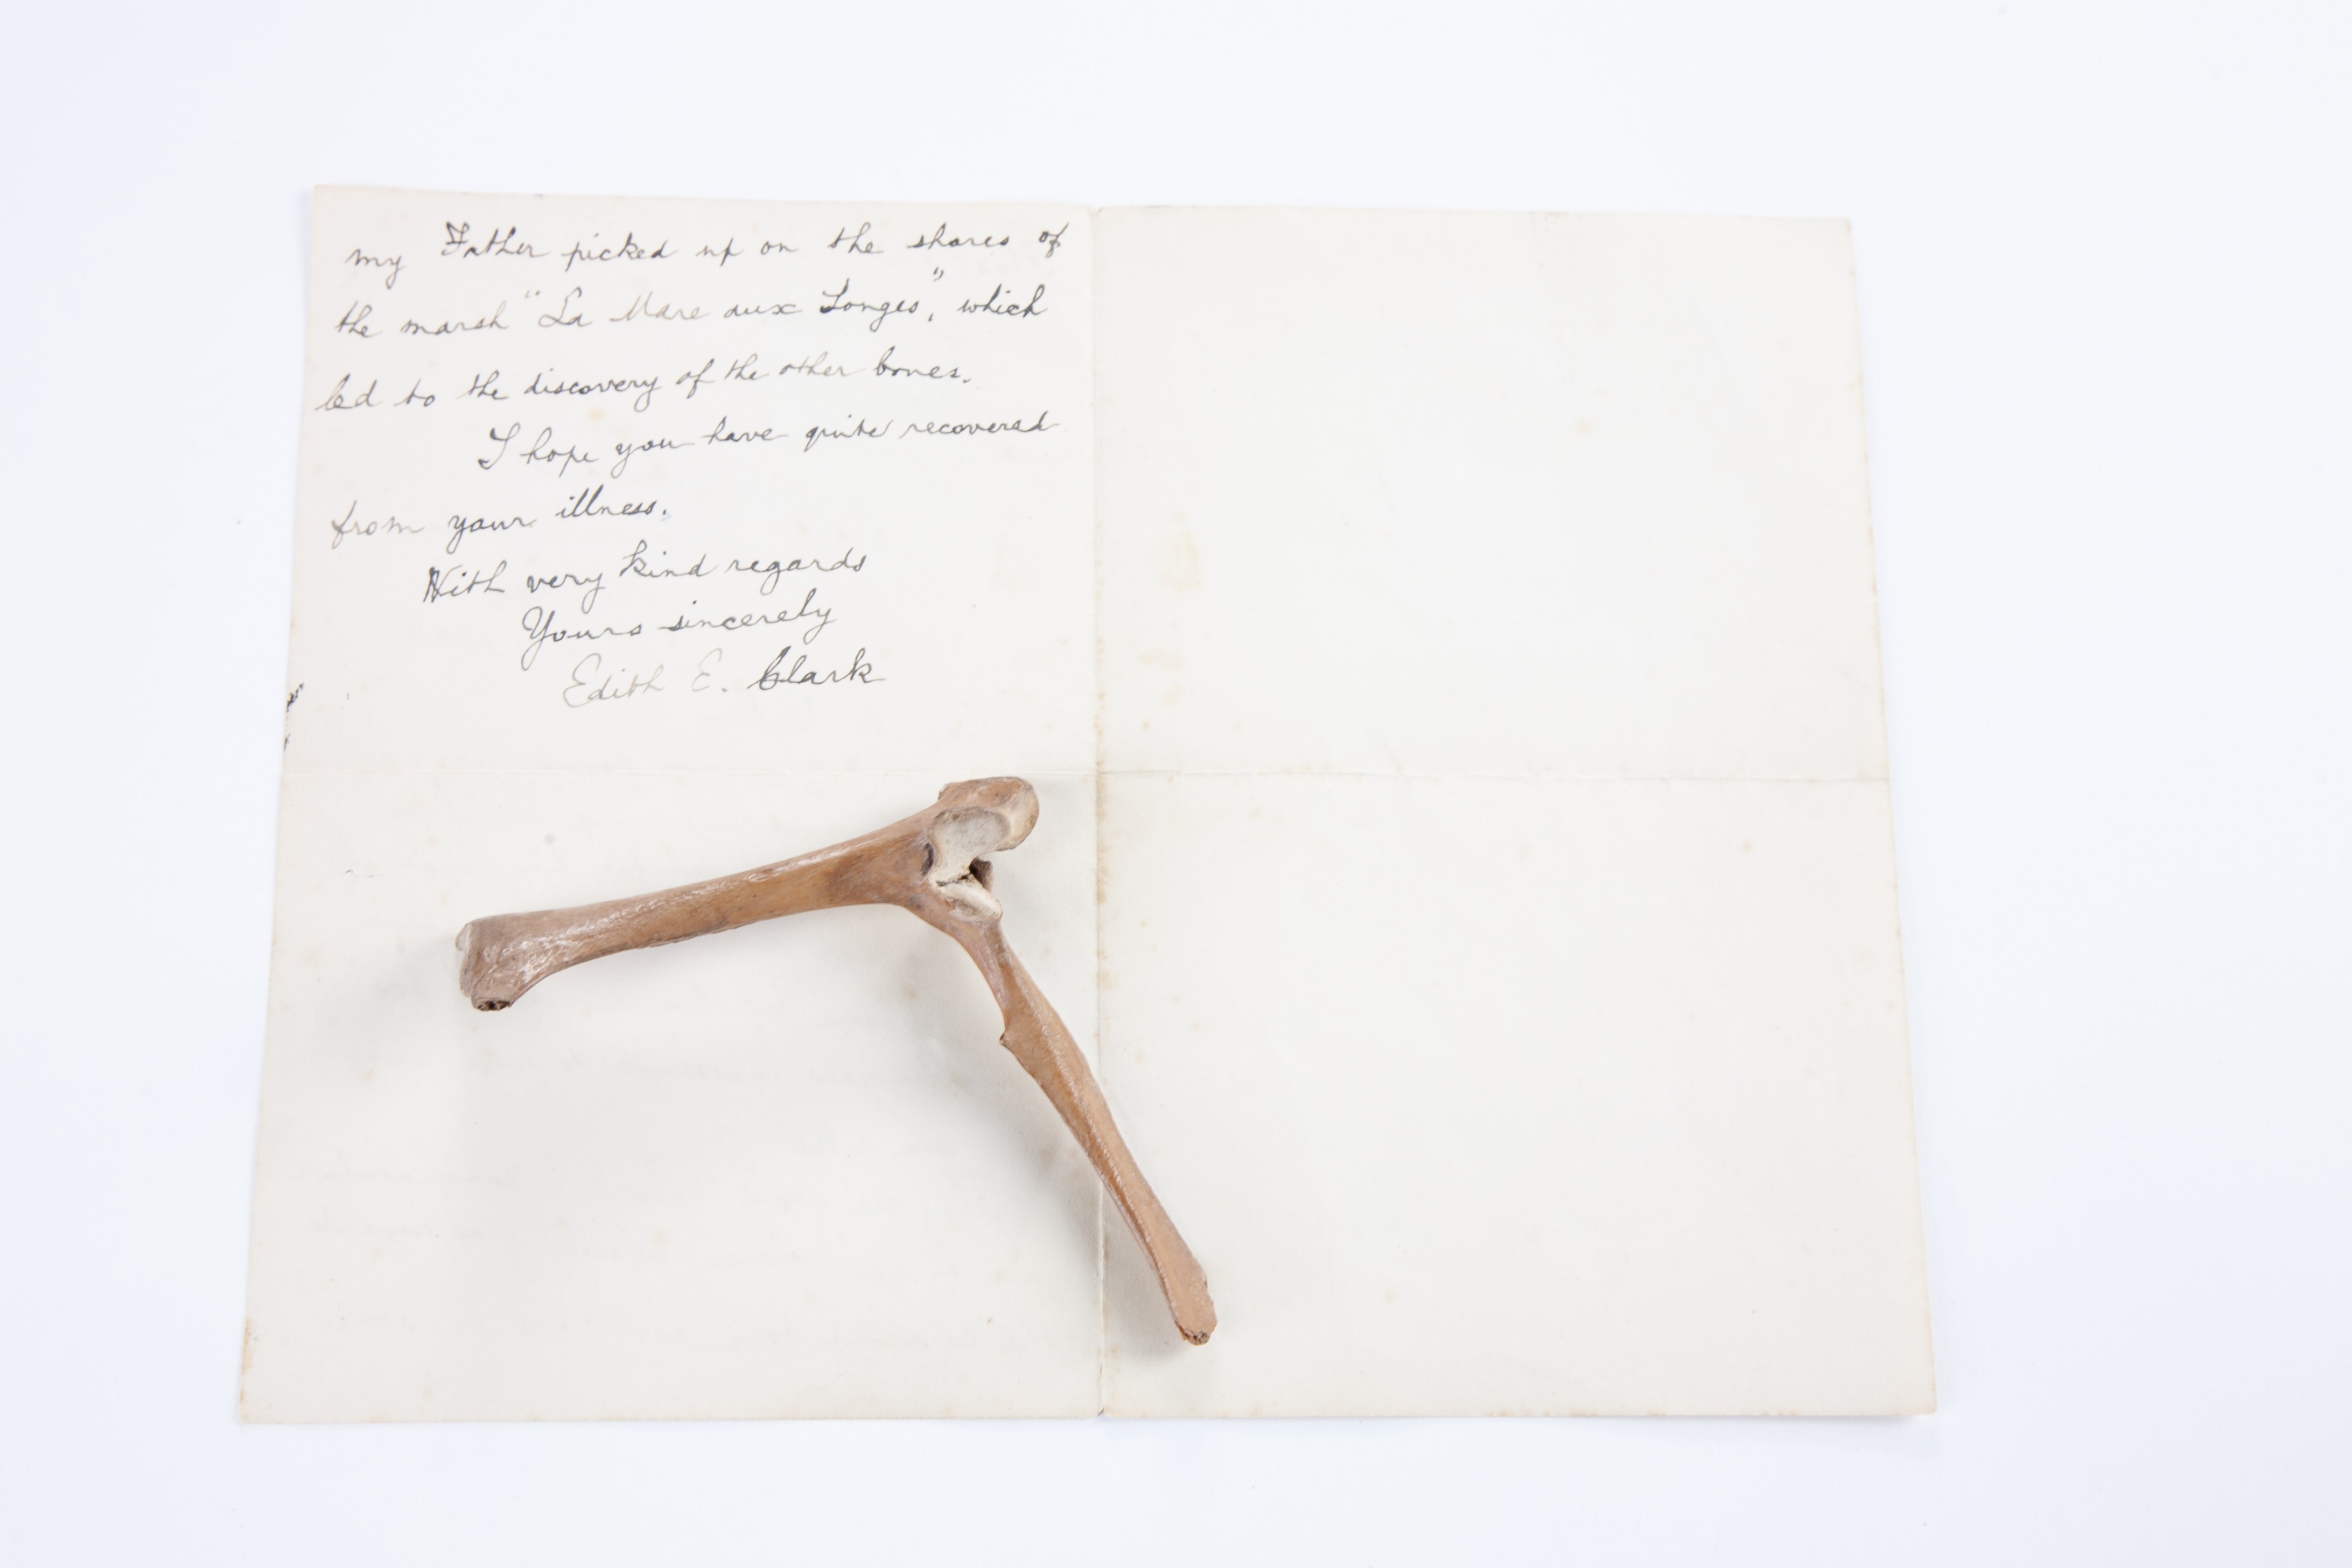 my Father picked up on the shores of
the marsh "La Mare aux Songes", which
led to the discovery of the other bones.
I hope you have quite recovered
from your illness.
With very kind regards
Yours sincerely
Edith E. Clark